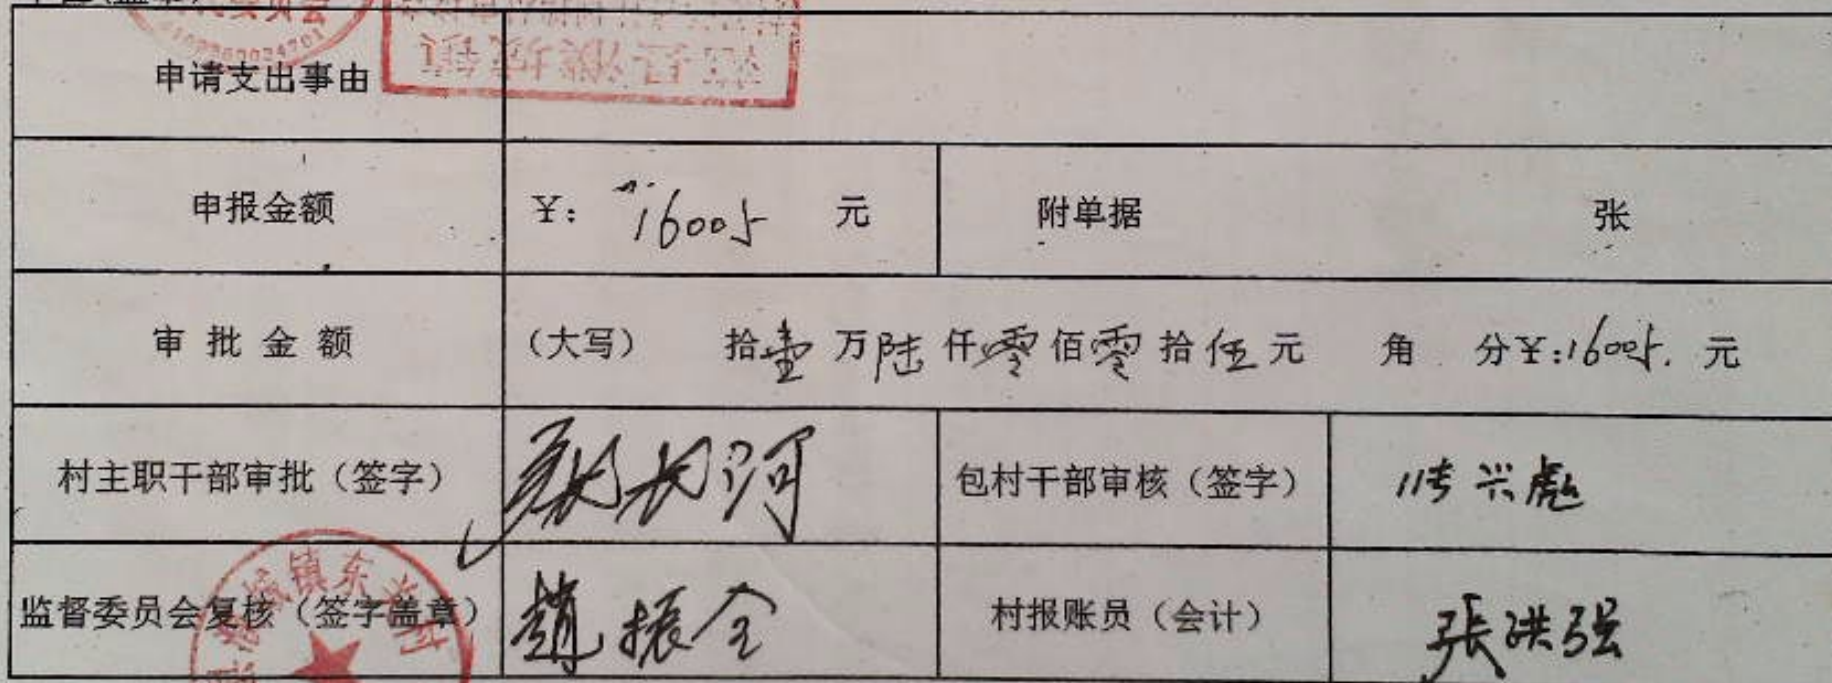 申请支出事由
申报金额 ¥: 16005 元 附单据 张
审批金额 (大写) 拾壹万陆仟零佰零拾伍元 角 分¥:16005. 元
村主职干部审批（签字） 长河 包村干部审核（签字） 兴彪
监督委员会复核（签字盖章） 趙振全 村报账员（会计） 張洪强
城镇东